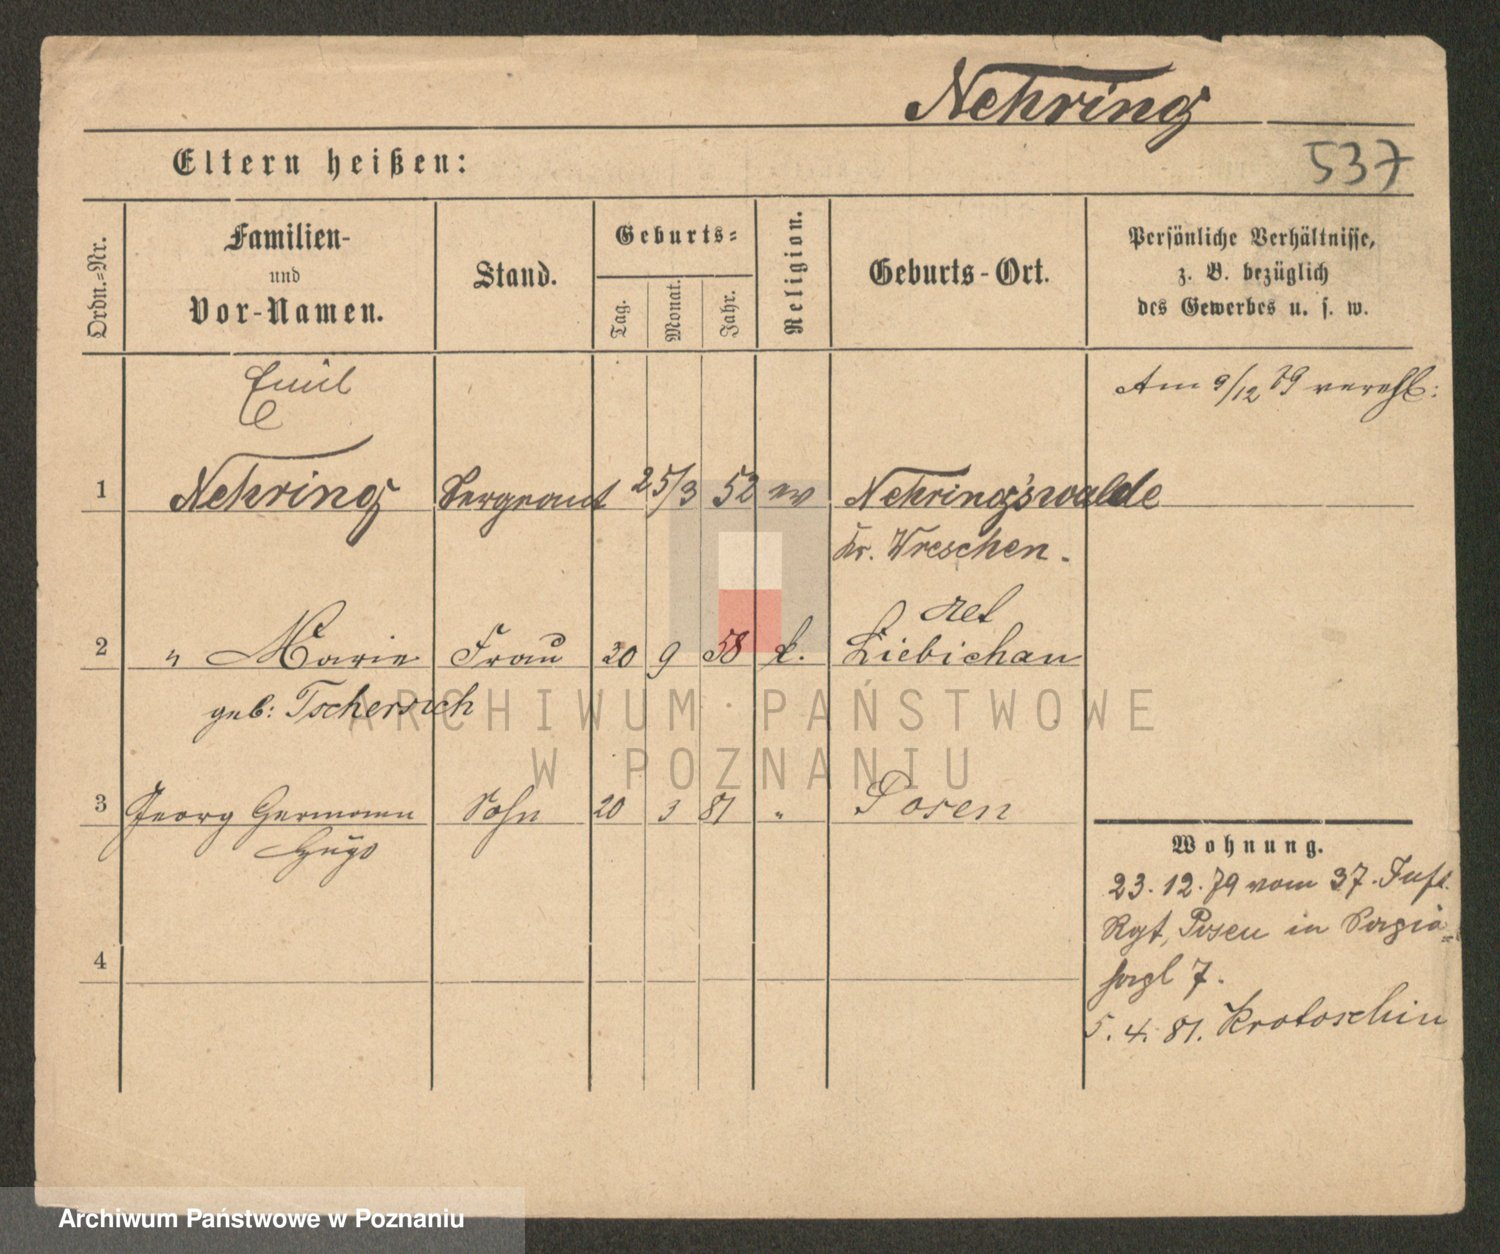 Nehring
537
Eltern heißen:
Ordn.-Nr.
Familien-
und
Vor-Namen.
Stand.
Geburts-
Tag.
Monat.
Jahr.
Religion.
Geburts-Ort.
Persönliche Verhältnisse,
z. B. bezüglich
des Gewerbes u. s. w.
Emil
Am 9/12 79 verehl:
1 Nehring Sergeant 25/3 52 ev Nehringswalde
Kr. Wreschen.
2 " Marie Frau 30 9 58 k. Liebichau
geb: Tschersich
3 Georg Hermann Sohn 20 3 81 " Posen
Hugo
Wohnung.
23.12.79 vom 37. Inft.
Rgt, Posen in
7.
4
5.4.81. Krotoschin
ARCHIWUM PAŃSTWOWE
W POZNANIU
Archiwum Państwowe w Poznaniu